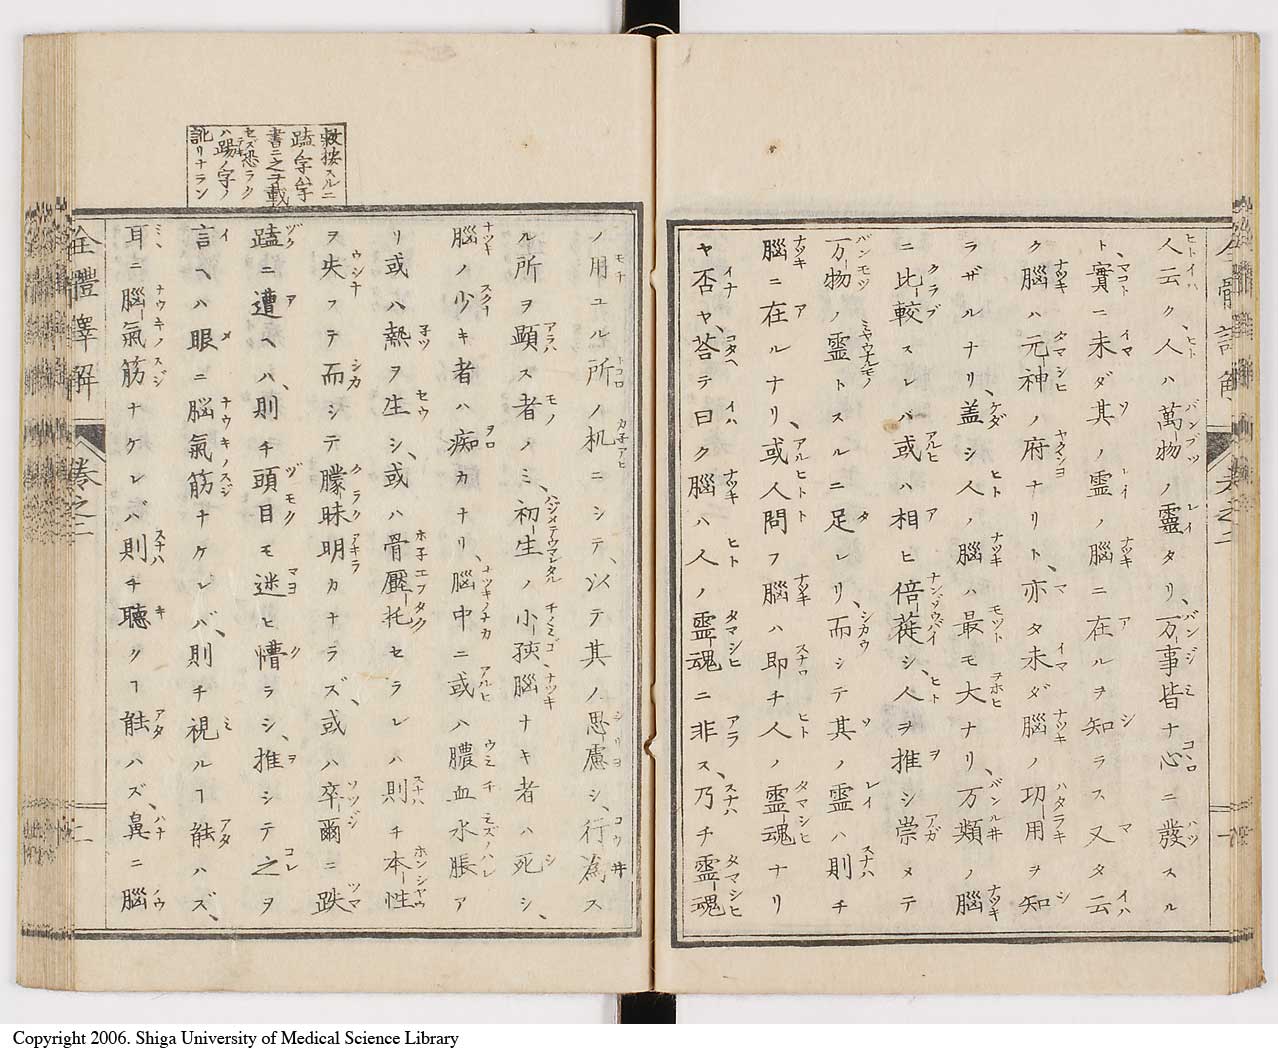 人云ク、人ハ萬物ノ靈タリ、万事皆ナ心ニ發スル
ト、實ニ未ダ其ノ霊ノ腦ニ在ルヲ知ラス又タ云
ク腦ハ元神ノ府ナリト、亦タ未ダ腦ノ功用ヲ知
ラザルナリ盖シ人ノ腦ハ最モ大ナリ、万類ノ腦
ニ比較スレバ或ハ相ヒ倍蓰シ、人ヲ推シ崇メテ
万物ノ霊トスルニ足レリ、而シテ其ノ霊ハ則チ
腦ニ在ルナリ、或人問フ腦ハ即チ人ノ霊魂ナリ
ヤ否ヤ、荅テ曰ク腦ハ人ノ霊魂ニ非ス、乃チ霊魂
ノ用ユル所ノ机ニシテ、以テ其ノ思慮シ、行為ス
ル所ヲ顕ス者ノミ、初生ノ小孩腦ナキ者ハ死シ、
腦ノ少キ者ハ痴カナリ、腦中ニ或ハ膿血水脹ア
リ或ハ熱ヲ生シ、或ハ骨壓托セラレハ則チ本性
ヲ失フテ而シテ朦昧明カナラズ、或ハ卒爾ニ跌
蹅ニ遭ヘハ、則チ頭目モ迷ヒ懵ラシ、推シテ之ヲ
言ヘハ眼ニ腦氣筋ナケレバ、則チ視ルヿ能ハズ、
耳ニ腦氣筋ナケレバ則チ聴クヿ能ハズ、鼻ニ腦
按スルニ
ノ字字
書ニ之ヲ載
セズ恐ラク
ハ踢ノ字ノ
訛リナラン
全體譯解
卷之二
二
Copyright 2006. Shiga University of Medical Science Library